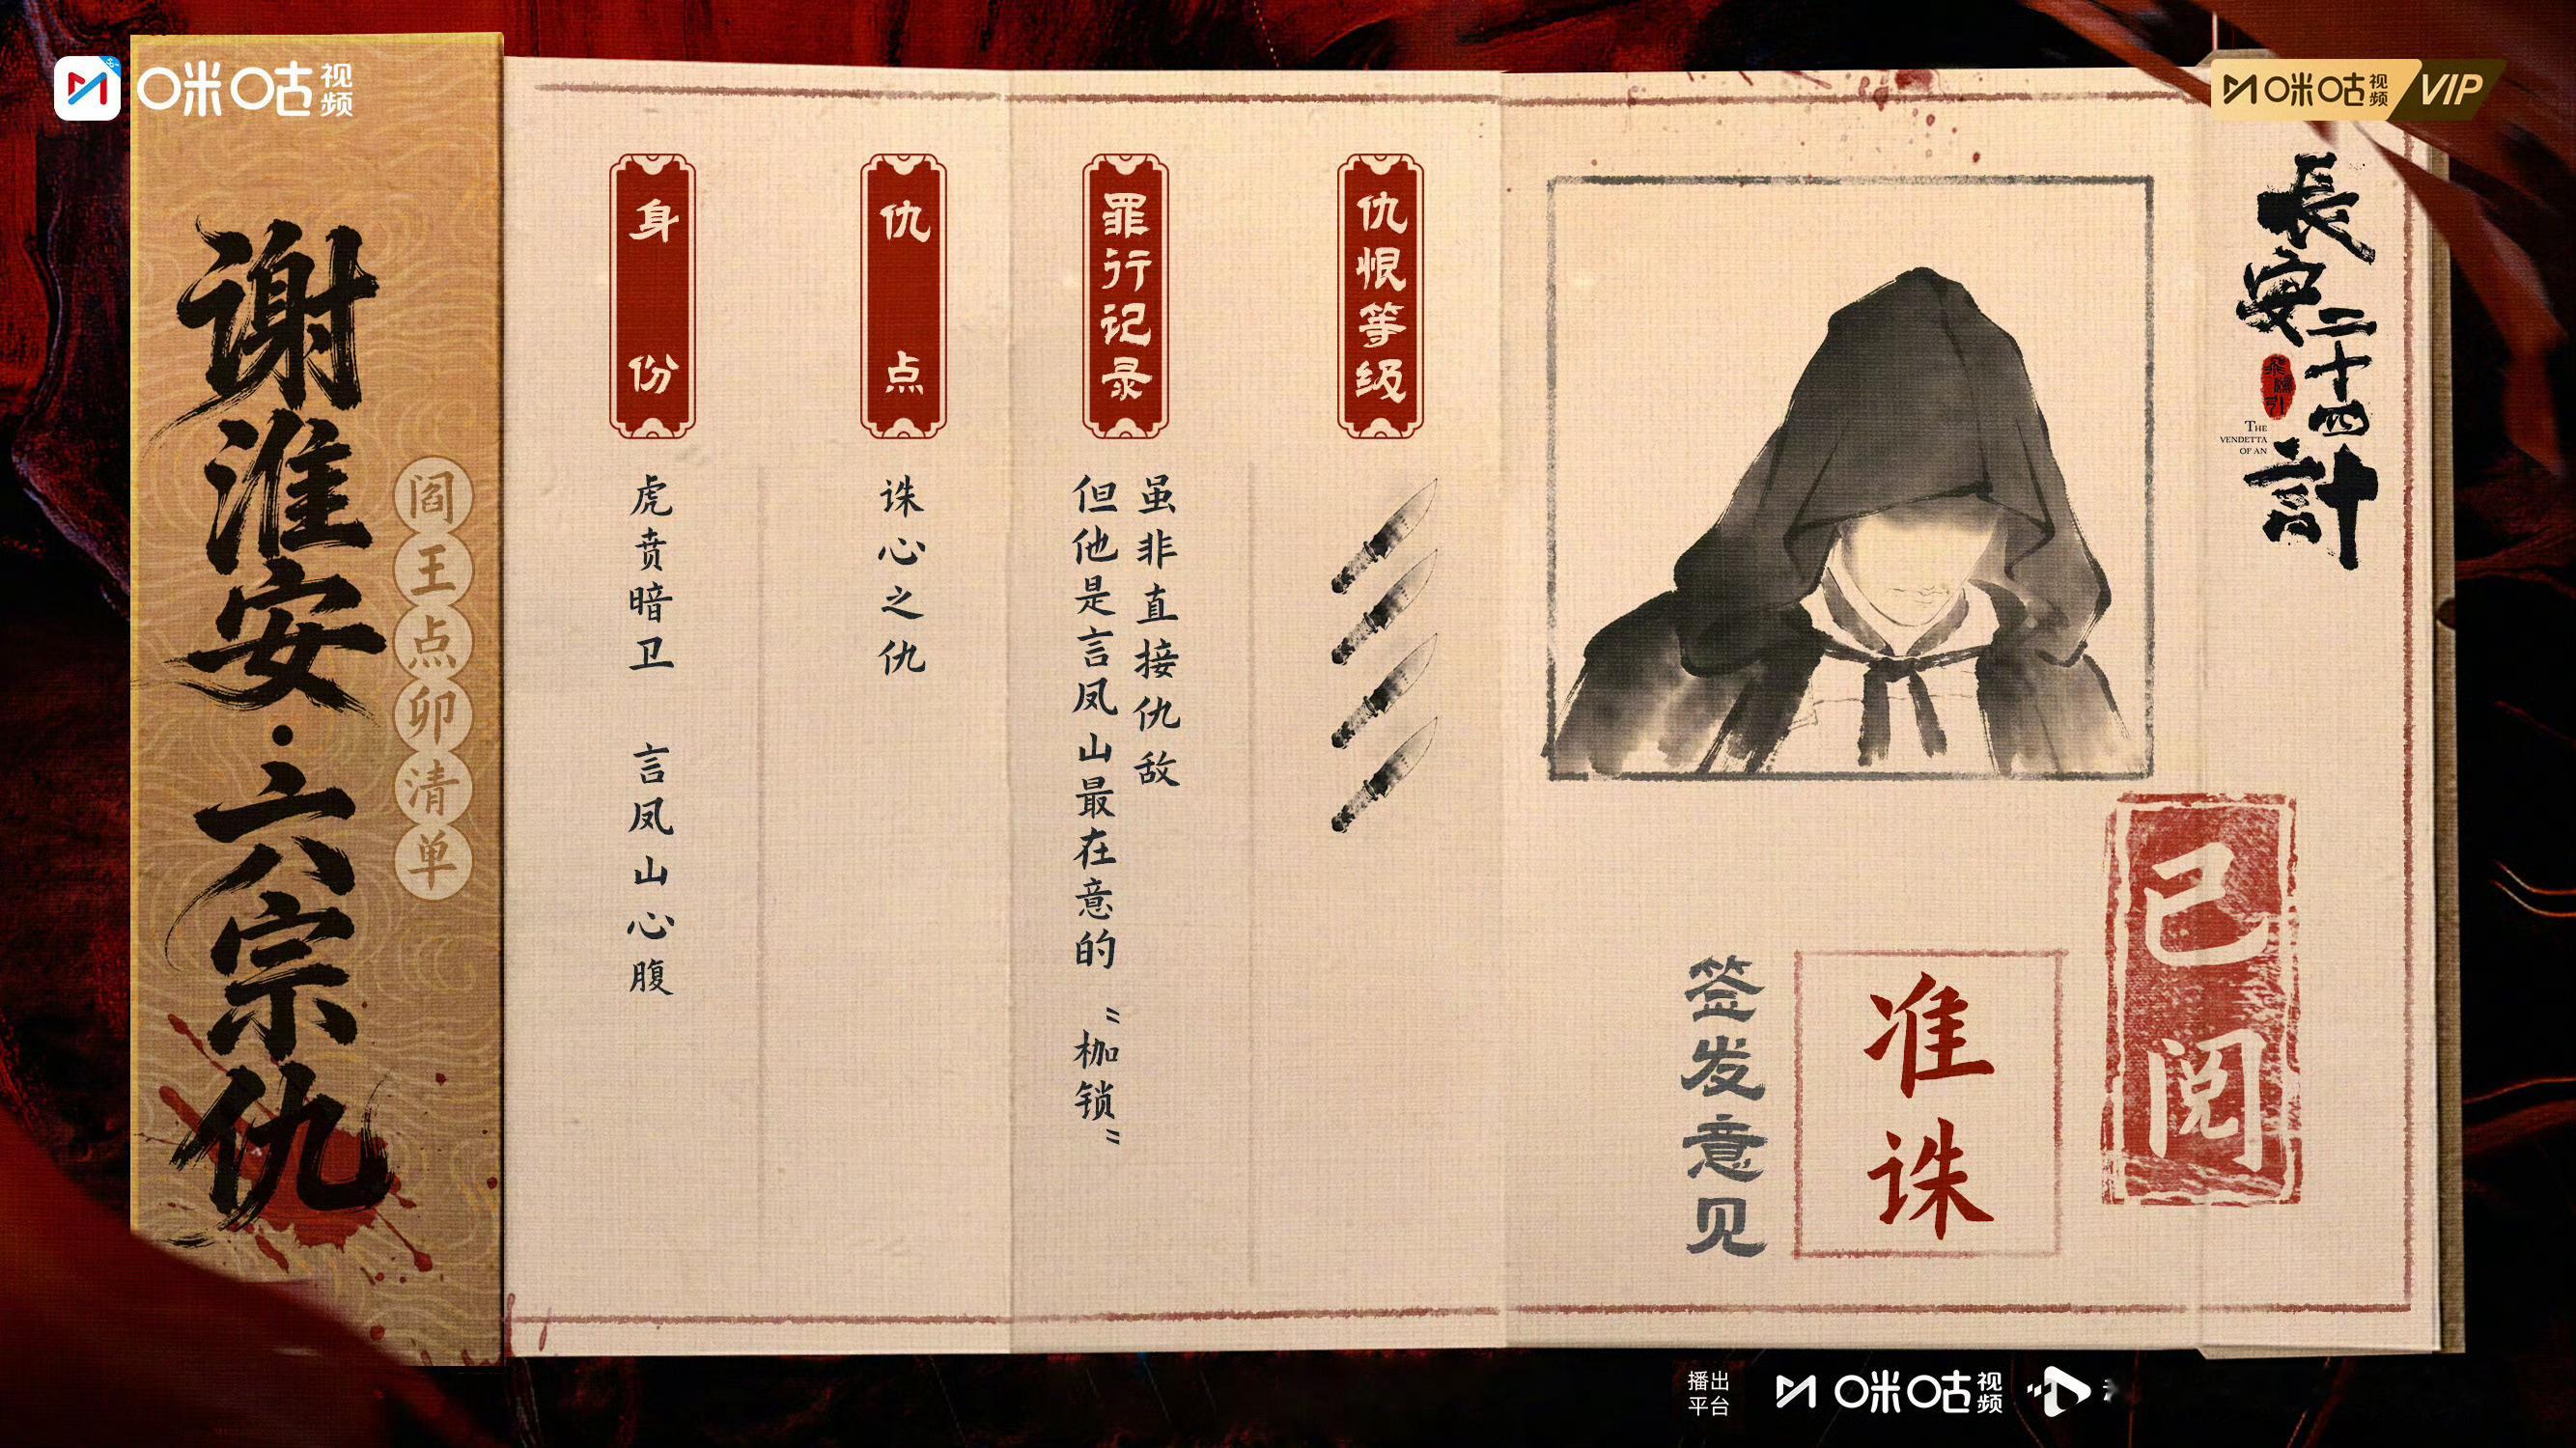 咪咕视频
咪咕视频 VIP
谢淮安·六宗仇
阎王点卯清单
身份
虎贲暗卫 言凤山心腹
仇点
诛心之仇
罪行记录
虽非直接仇敌
但他是言凤山最在意的“枷锁”
仇恨等级
長安二十四計
THE
VENDETTA
OF AN
已阅
签发意见
准诛
播出平台
咪咕视频